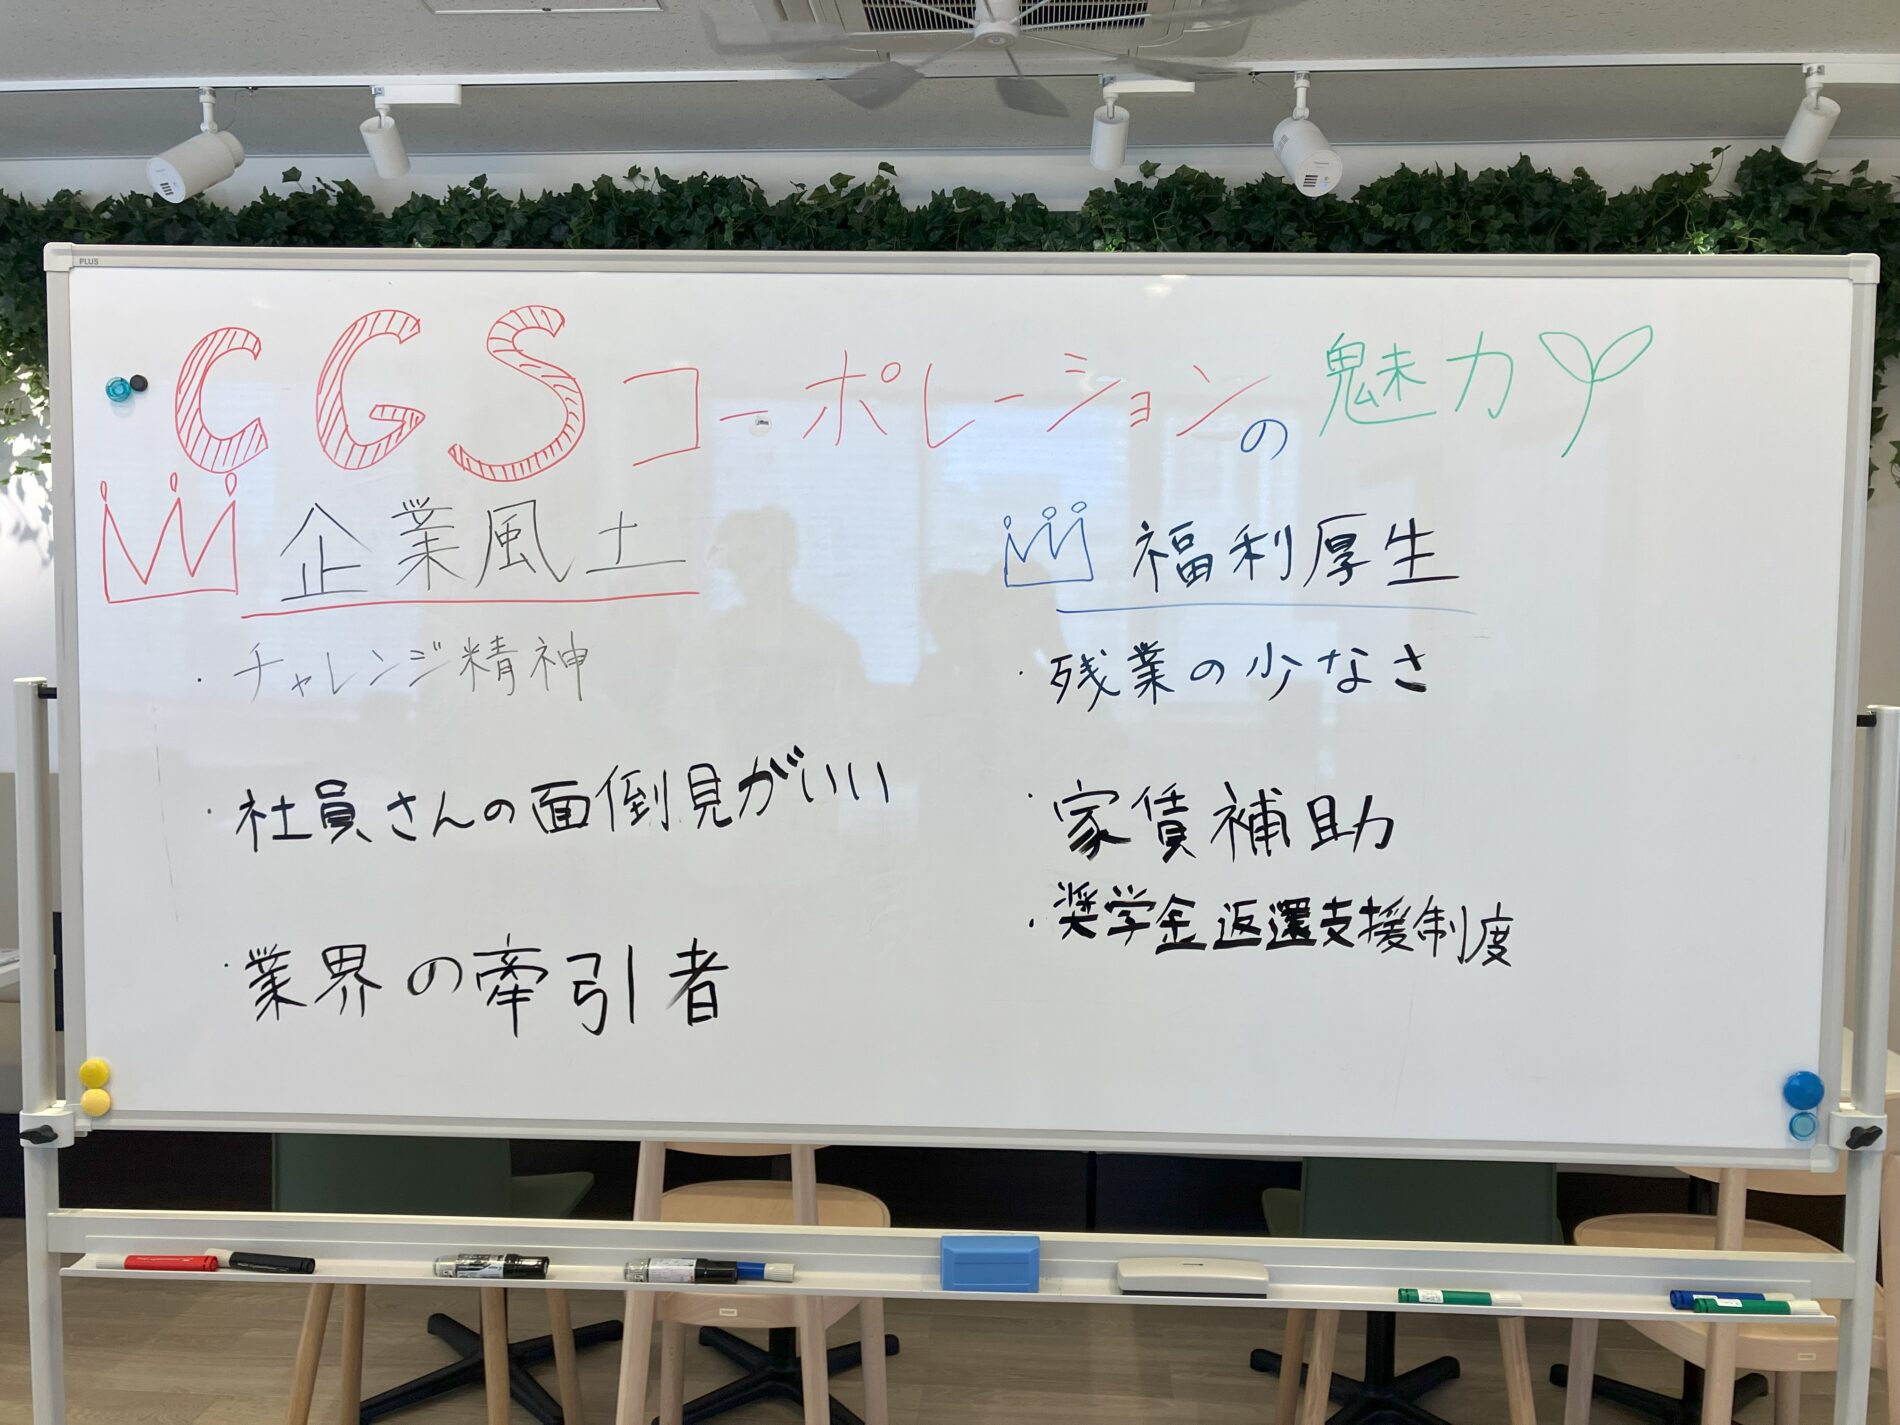 PLUS
CGSコーポレーションの魅力
企業風土
・チャレンジ精神
・社員さんの面倒見がいい
・業界の牽引者
福利厚生
・残業の少なさ
・家賃補助
・奨学金返還支援制度